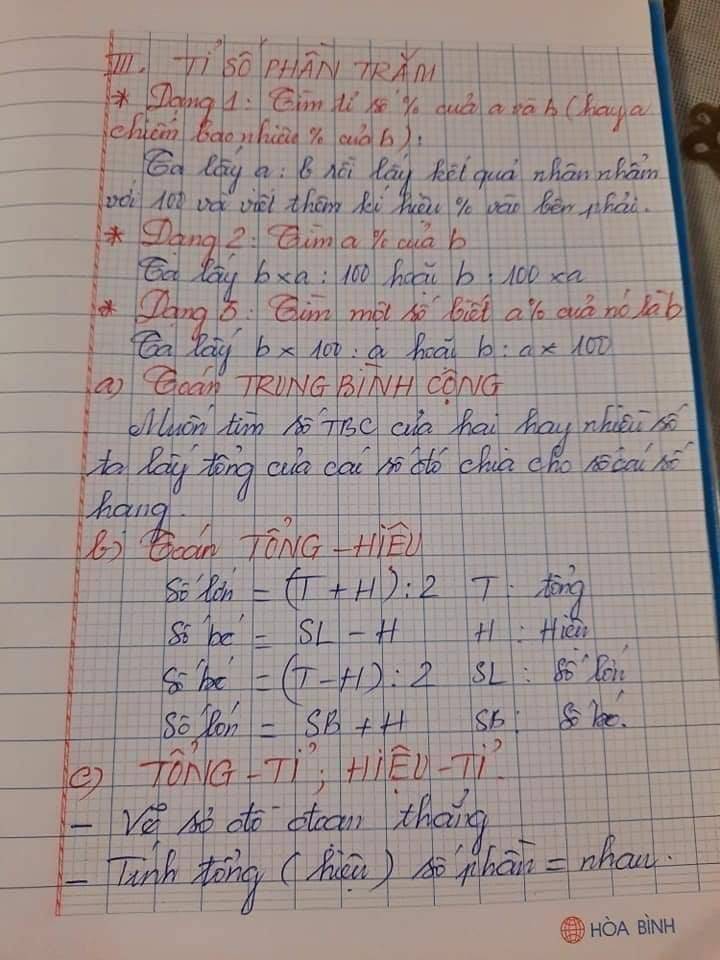 III. TỈ SỐ PHẦN TRĂM
* Dạng 1: Tìm tỉ số % của a và b (hay a
chiếm bao nhiêu % của b):
Ta lấy a : b rồi lấy kết quả nhân nhẩm
với 100 và viết thêm kí hiệu % vào bên phải.
* Dạng 2: Tìm a % của b
Ta lấy b x a : 100 hoặc b : 100 x a
* Dạng 3: Tìm một số biết a% của nó là b
Ta lấy b x 100 : a hoặc b : a x 100
a) Toán TRUNG BÌNH CỘNG
Muốn tìm số TBC của hai hay nhiều số
ta lấy tổng của cái số đó chia cho số cái số
hạng.
b) Toán TỔNG - HIỆU
Số lớn = (T + H) : 2 T : tổng
Số bé = SL - H H : Hiệu
Số bé = (T - H) : 2 SL : Số lớn
Số lớn = SB + H SB : Số bé.
c) TỔNG - TỈ ; HIỆU - TỈ.
- Vẽ sơ đồ đoạn thẳng
- Tính tổng (hiệu) số phần = nhau.
HÒA BÌNH